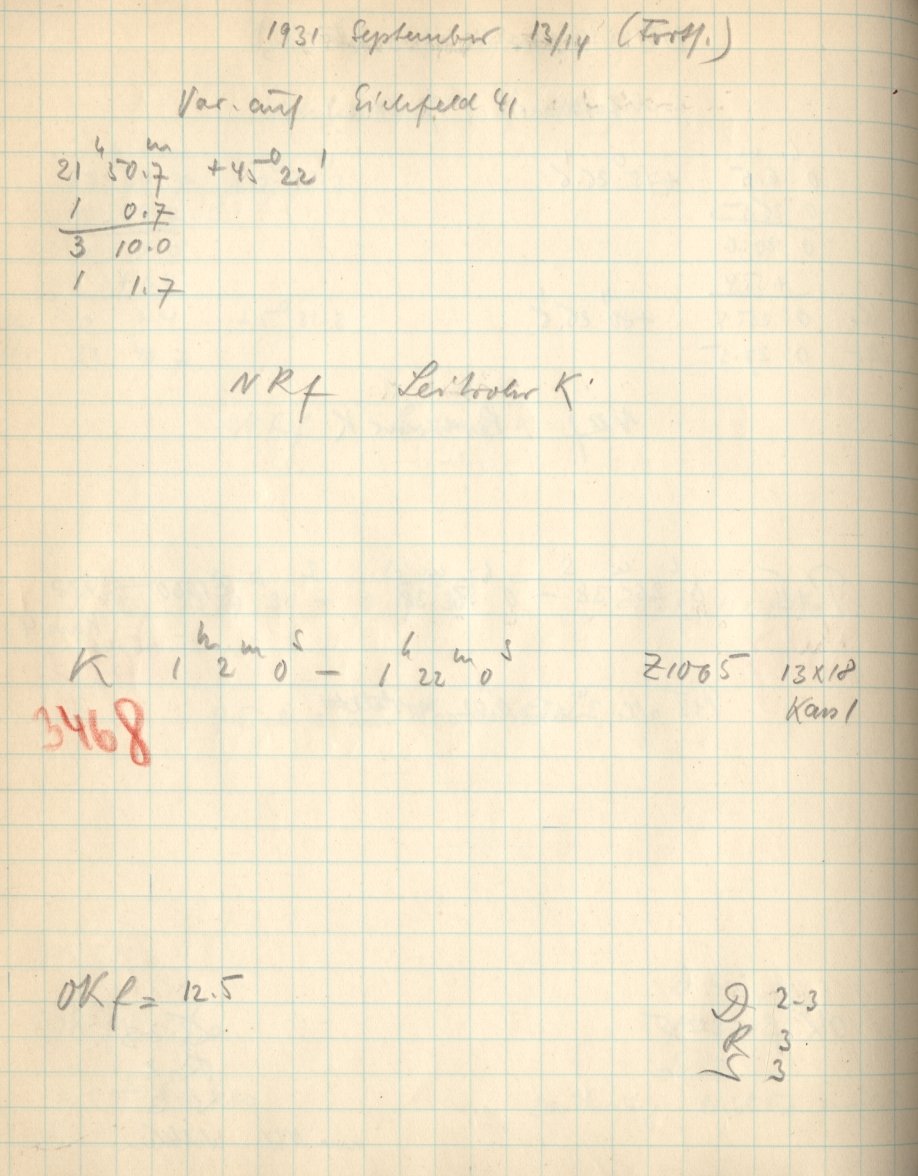 1931 September 13/14 (Forts.)
Var. auf Eichfeld 41
21ʰ 50.7ᵐ +45° 22'
1 0.7
3 10.0
1 1.7
NRf Leitrohr K.
K 1ʰ 2ᵐ 0ˢ – 1ʰ 22ᵐ 0ˢ Z1065 13x18
3468 Kass 1
OKf = 12.5
D 2-3
R 3
3